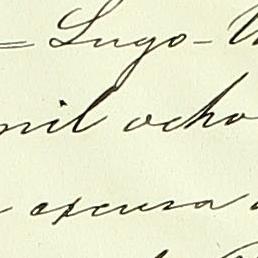 = Lugo -
mil ocho
excusa